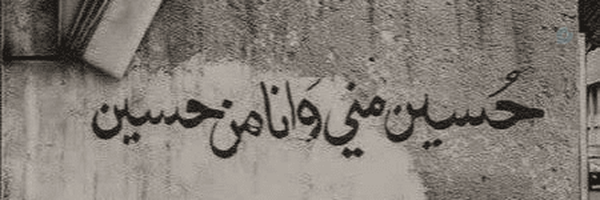 حُسين مني وَانا من حسين